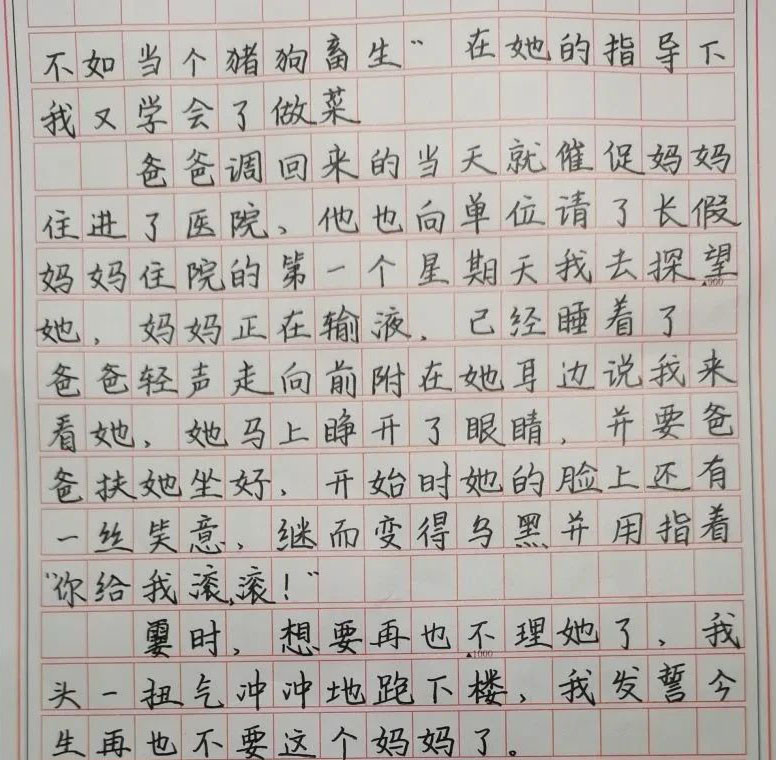 不如当个猪狗畜生" 在她的指导下
我又学会了做菜
爸爸调回来的当天就催促妈妈
住进了医院、他也向单位请了长假
妈妈住院的第一个星期天我去探望
▲900
她, 妈妈正在输液. 已经睡着了
爸爸轻声走向前附在她耳边说我来
看她, 她马上睁开了眼睛, 并要爸
爸扶她坐好、开始时她的脸上还有
一丝笑意、继而变得乌黑并用指着
"你给我滚,滚!"
霎时, 想要再也不理她了、我
▲1000
头一扭气冲冲地跑下楼, 我发誓今
生再也不要这个妈妈了。